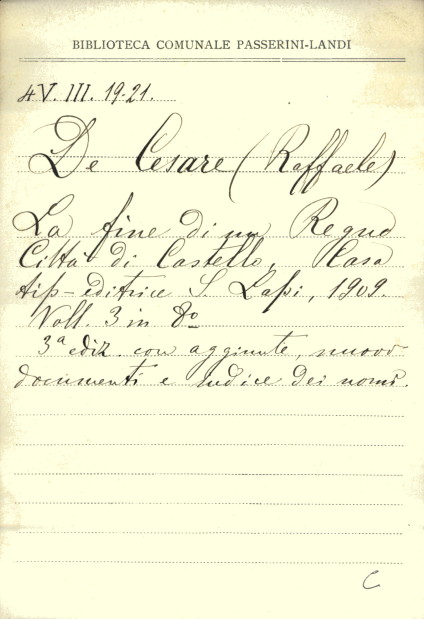 BIBLIOTECA COMUNALE PASSERINI-LANDI
4V. III. 19-21.
De Cesare (Raffaele)
La fine di un Regno
Città di Castello, Casa
tip-editrice S. Lapi, 1909.
Voll. 3 in 8º
3ª ediz. con aggiunte, nuovi
documenti e Indice dei nomi.
C